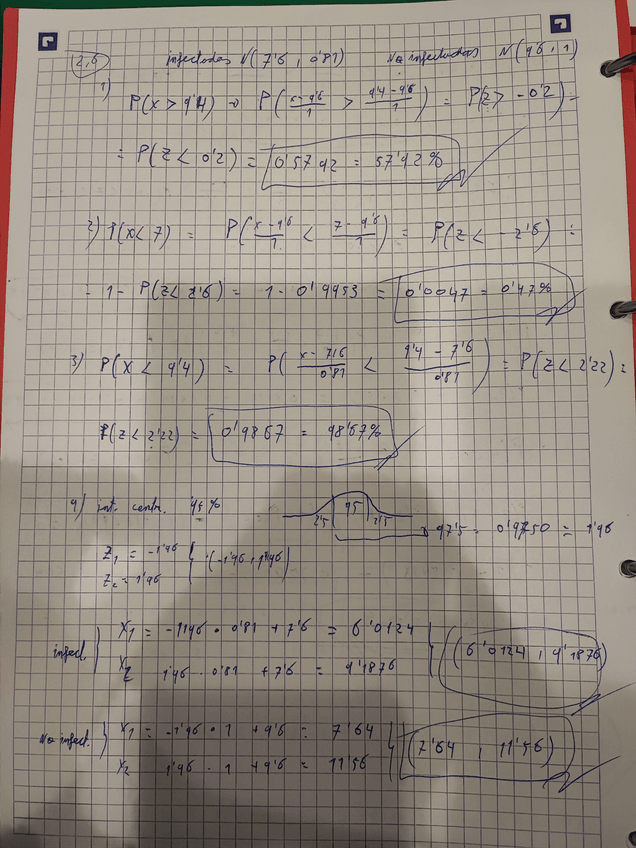 2,6 infectados N(7'6, 0'81) No infectados N(9'6, 1)
1) P(x > 9'4) → P((x-9'6)/1 > (9'4-9'6)/1) = P(z > -0'2) =
= P(z < 0'2) = 0'5792 = 57'92%
2) P(x < 7) = P((x-9'6)/1 < (7-9'6)/1) = P(z < -2'6) =
= 1- P(z < 2'6) = 1- 0'9953 = 0'0047 = 0'47%
3) P(X < 9'4) = P((x-7'6)/0'81 < (9'4-7'6)/0'81) = P(z < 2'22) =
P(z < 2'22) = 0'9867 = 98'67%
4) int. centr. 95%
2'5 95 2'5 → 97'5 = 0'9750 = 1'96
z1 = -1'96 (-1'96, 1'96)
z2 = 1'96
infect. X1 = -1'96 · 0'81 + 7'6 = 6'0124 (6'0124, 9'1876)
X2 1'96 · 0'81 + 7'6 = 9'1876
No infect. X1 = -1'96 · 1 + 9'6 = 7'64 (7'64, 11'56)
X2 1'96 · 1 + 9'6 = 11'56